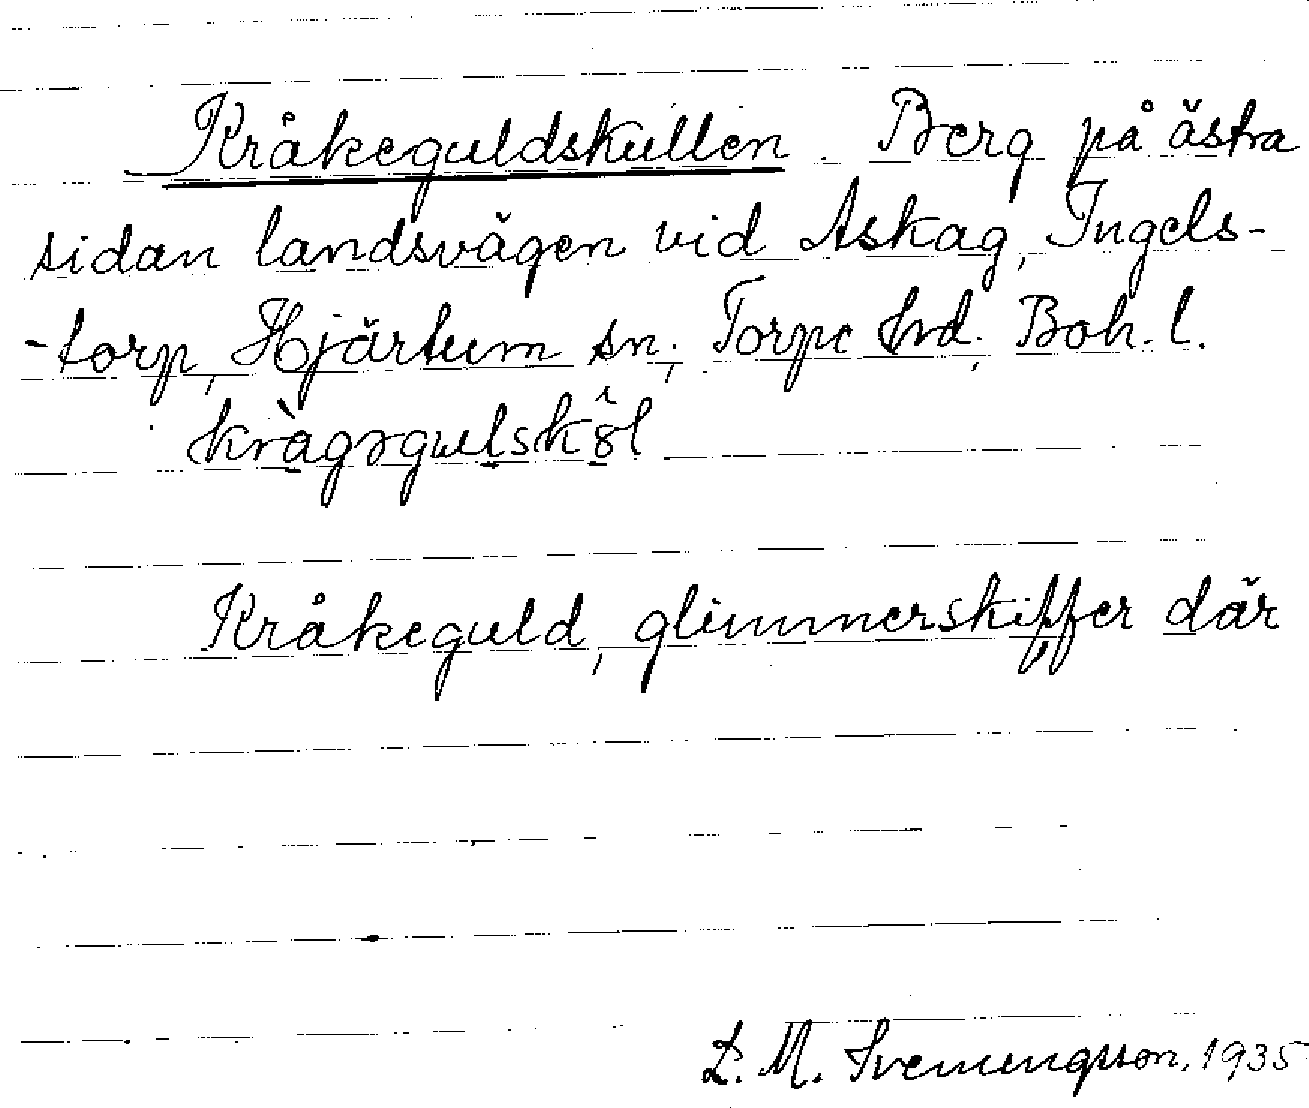 Kråkeguldskullen. Berg på östra
sidan landsvägen vid Askag, Ingels-
-torp, Hjärtum sn; Torpe hrd; Boh. l.
Kråkeguld, glimmerskiffer där
L. M. Svenungsson, 1935